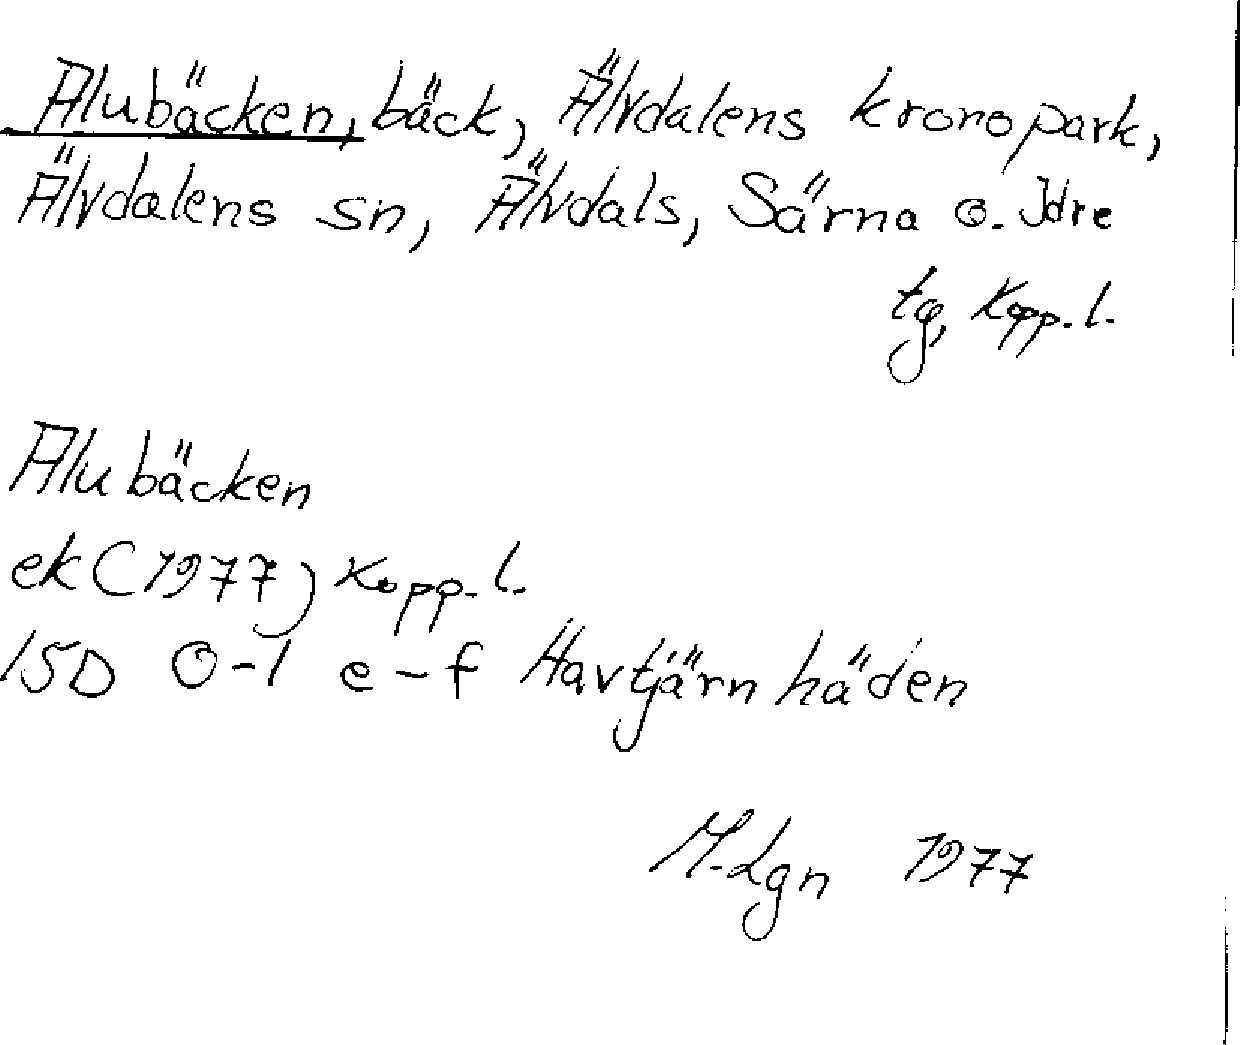 Alubäcken, bäck, Älvdalens kronopark,
Älvdalens sn, Älvdals, Särna o. Idre
tg, Kopp. l.
Alubäcken
ek (1977) Kopp. l.
15D 0-1 e-f Havtjärnhäden
M. Lgn 1977